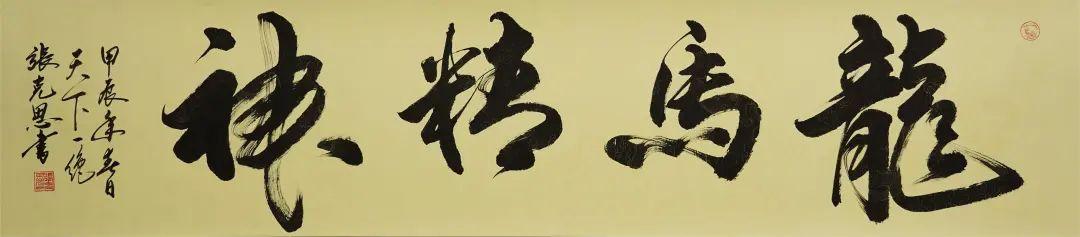 龍馬精神
甲辰年春日
天下一绝
張克思書